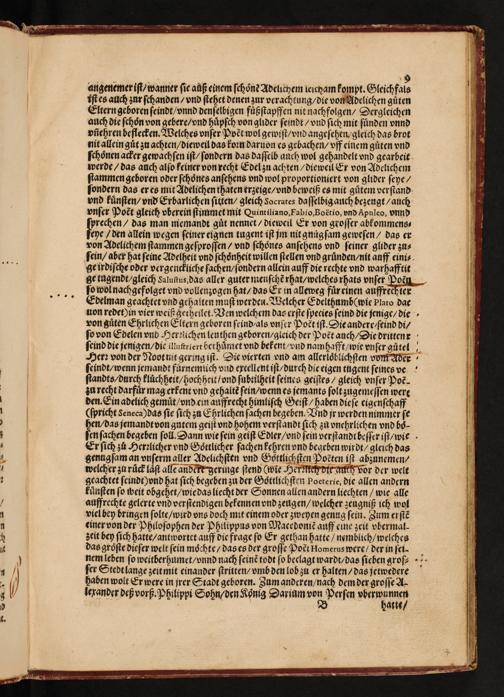 9
angenemer ist/wanner sie auß einem schönē Adelichem leicham kompt. Gleichfals
ist es auch zur schanden/ vnd stehet denen zur verachtung/die von Adelichen güten
Eltern geboren seindt/vnnd denselbigen füßstapffen nit nachfolgen/ Dergleichen
auch die schön von geberc/vnd hüpsch von glider seindt/vnd sich mit sünden vnnd
befleckten. Welches vnser Poët wol gewist/vnd angesehen/ gleich das brot
nit allein güt zu achten/dieweil das korn daruon es gebachen/vff einem güten vnd
schönen acker gewachsen ist/ sondern das dasselb auch wol gehandelt vnd gearbeit
werde/das auch also keiner von recht Edel zu achten/dieweil Er von Adelichem
stammen geboren oder schönes ansehens vnd wol proportioniert von glider seye/
sondern das er es mit Adelichen thaten erzeige/vnd beweiß es mit gütem verstand
vnd künsten/ vnd Erbarlichen sitten/ gleich Socrates dasselbig auch bezeugt/auch
vnser Poët gleich vberein stimmet mit Quintiliano, Fabio, Boëtio, vnd Apuleo, vnnd
sprechen/ das man niemandt güt nennet/ dieweil Er von grosser abkommens-
seye/ den allein wegen seiner eignen tugent ist jm nit gnügsam gewesen/ das er
von Adelichem stammen gesprossen/ vnd schönes ansehens vnd seiner glider zu-
sein/aber hat seine Adelheit vnd schönheit willen stellen vnd gründen/nit auff eini-
ge irdische oder vergencliche sachen/sondern allein auff die rechte vnd warhafftit
ge tugendt/gleich Salustus,das aller guter menschē rhat/welches rhats vnser Poët
so wol nachgefolget vnd vollenzogen hat/das Er in alleweg für einen auffrechter
Edelman geachtet vnd gehalten must werden. Welcher Edelthumb(wie Plato dae
uon redet)in vier weiß getheilet. Ven welchem das erste species seind die jenige/die
von güten Ehrlichen Eltern geboren seind/als vnser Poët ist. Die andere/seind di/
so von Edelen vnd Herrlichen leuthen geboren/gleich der Poët auch/Die dritten
seind die jenigen/die illustriert berhümet vnd bekent/vnd namhafft/wie vnser gütel
Herr von der Noot nit gering ist. Die vierten vnd am allerlöblichsten vom Ader
seindt/wenn jemandt fürnemlich vnd excellent ist/durch die eigen tugent seines ve
standts/durch klüchheit/hochheit/vnd subtilheit seines geistes/ gleich vnser Poë-
zu recht darfür mag erkent vnd gehaltē sein/wenn es jemants solt zugemessen were
den. Ein adelich gemüt/vnd ein auffrecht himlisch Geist/haben diese eigenschafft
(spricht Seneca)das sie sich zu Ehrlichen sachen begeben. Vnd jr werden nimmer se
hen/das jemandt von gutem geist vnd hohem verstandt sich zu vnehrlichen vnd bö-
sen sachen begeben soll. Dann wie sein geist Edler/vnd sein verstandt besser ist/wie
Er sich zü Herrlicher vnd Göttlicher sachen kehren vnd begeben wirdt/gleich das
genugsam an vnserm aller Adelichsten vnd Göttlichsten Poëten ist abzunemen/
welcher zu rück läßt alle andere geringe stend (wie Herrlich die auch vor der welt
geachtet seindt)vnd hat sich begeben zu der Göttlichsten Poeterie, die allen andern
künsten so weit obgehet/wie das liecht der Sonnen allen andern liechten/ wie alle
auffrechte gelerte vnd verstendigen bekennen vnd zeugen/welcher zeugniß ich wol
viel bey bringen solte/wird vns doch mit einem oder zweyen genug sein. Zum erstē
einer von der Philosophen der Philippus von Macedoniē auff eine zeit vbermal-
zeit bey sich hatte/antwortet auff die frage so Er gethan hatte/nemblich/welches
das gröste dieser welt sein möchte/das es der grosse Poët Homerus were/der in sei-
nem leben so weitberhümet/vnnd nach seinē todt so beklagt wardt/das sieben gros-
ser Stedt lange zeit mit einander stritten/vmb den lob zu erhalten/das jetwedere
haben wolt Er were in jrer Stadt geboren. Zum anderen/nach dem der grosse A-
lexander deß vorß. Philippi Sohn/den König Darium von Persen vberwunnen
B hatte/